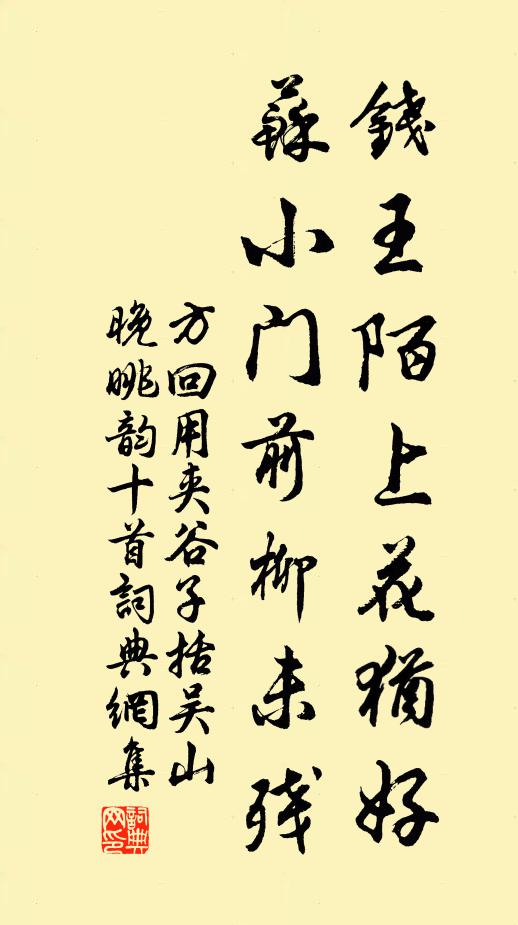 錢王陌上花猶好
蘇小门前柳未殘
方回用夹谷子括吴山
晚眺韵十首詞典網集
詞典
网印